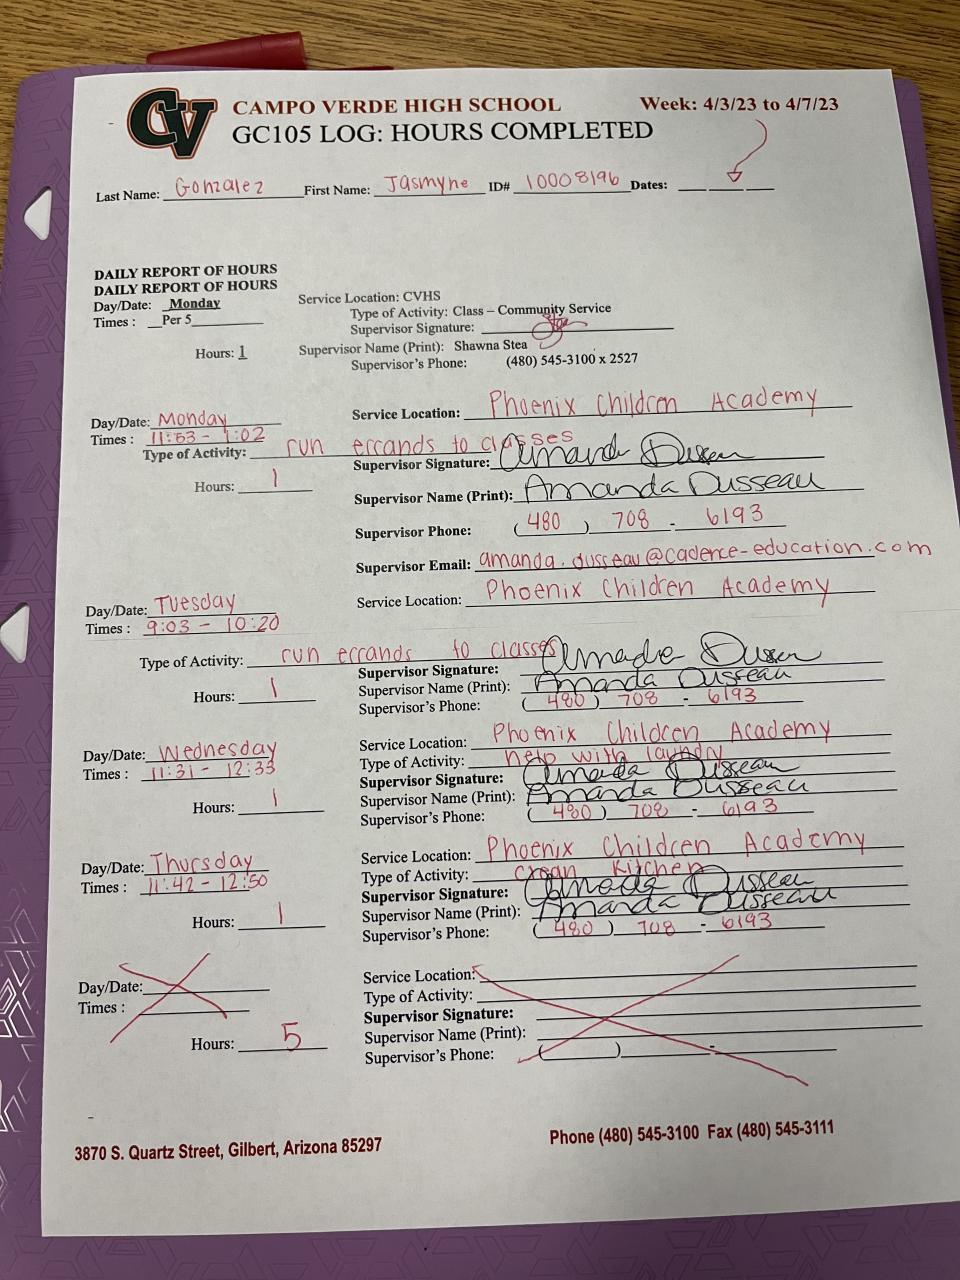 CV
CAMPO VERDE HIGH SCHOOL Week: 4/3/23 to 4/7/23
GC105 LOG: HOURS COMPLETED
Last Name: Gonzalez First Name: Jasmyne ID# 10008196 Dates:
DAILY REPORT OF HOURS
DAILY REPORT OF HOURS
Day/Date: Monday Service Location: CVHS
Times : Per 5 Type of Activity: Class – Community Service
Supervisor Signature:
Hours: 1 Supervisor Name (Print): Shawna Stea
Supervisor's Phone: (480) 545-3100 x 2527
Day/Date: Monday Service Location: Phoenix Children Academy
Times : 11:53 - 1:02
Type of Activity: run errands to classes
Supervisor Signature: Amanda Dusseau
Hours: 1 Supervisor Name (Print): Amanda Dusseau
Supervisor Phone: (480) 708 - 6193
Supervisor Email: amanda.dusseau@cadence-education.com
Day/Date: Tuesday Service Location: Phoenix Children Academy
Times : 9:03 - 10:20
Type of Activity: run errands to classes
Supervisor Signature: Amanda Dusseau
Hours: 1 Supervisor Name (Print): Amanda Dusseau
Supervisor's Phone: (480) 708 - 6193
Day/Date: Wednesday Service Location: Phoenix Children Academy
Times : 11:31 - 12:33 Type of Activity: help with laundry
Supervisor Signature: Amanda Dusseau
Hours: 1 Supervisor Name (Print): Amanda Dusseau
Supervisor's Phone: (480) 708 - 6193
Day/Date: Thursday Service Location: Phoenix Children Academy
Times : 11:42 - 12:50 Type of Activity: clean kitchen
Supervisor Signature: Amanda Dusseau
Hours: 1 Supervisor Name (Print): Amanda Dusseau
Supervisor's Phone: (480) 708 - 6193
Day/Date: Service Location:
Times : Type of Activity:
Supervisor Signature:
Hours: 5 Supervisor Name (Print):
Supervisor's Phone: ( ) -
3870 S. Quartz Street, Gilbert, Arizona 85297 Phone (480) 545-3100 Fax (480) 545-3111